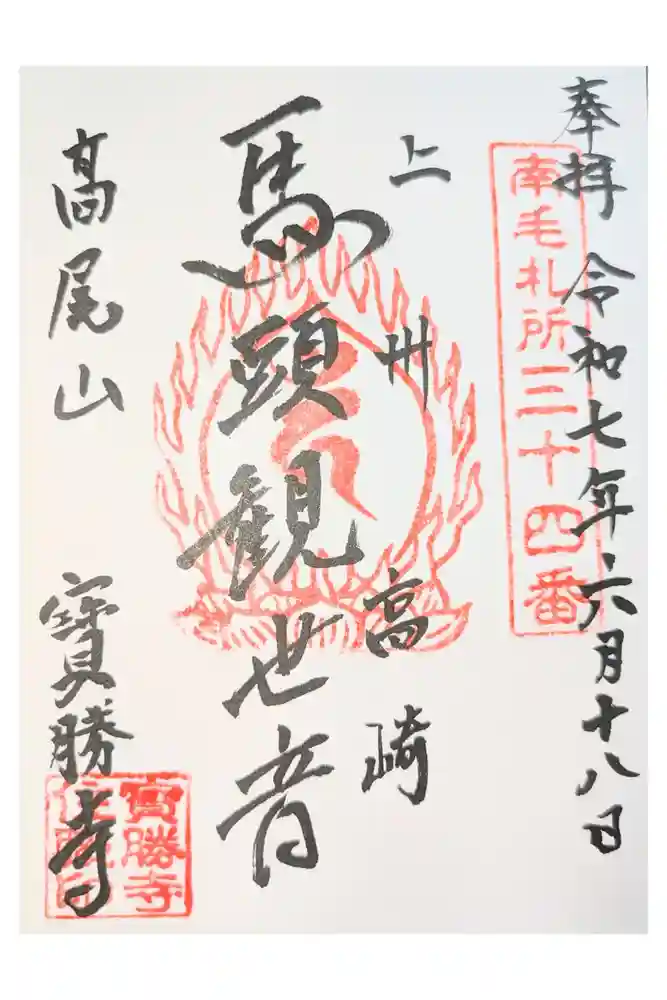 奉拝 令和七年六月十八日
南毛札所三十四番
上州 高崎
馬頭観世音
高尾山 寳勝寺
寳勝寺